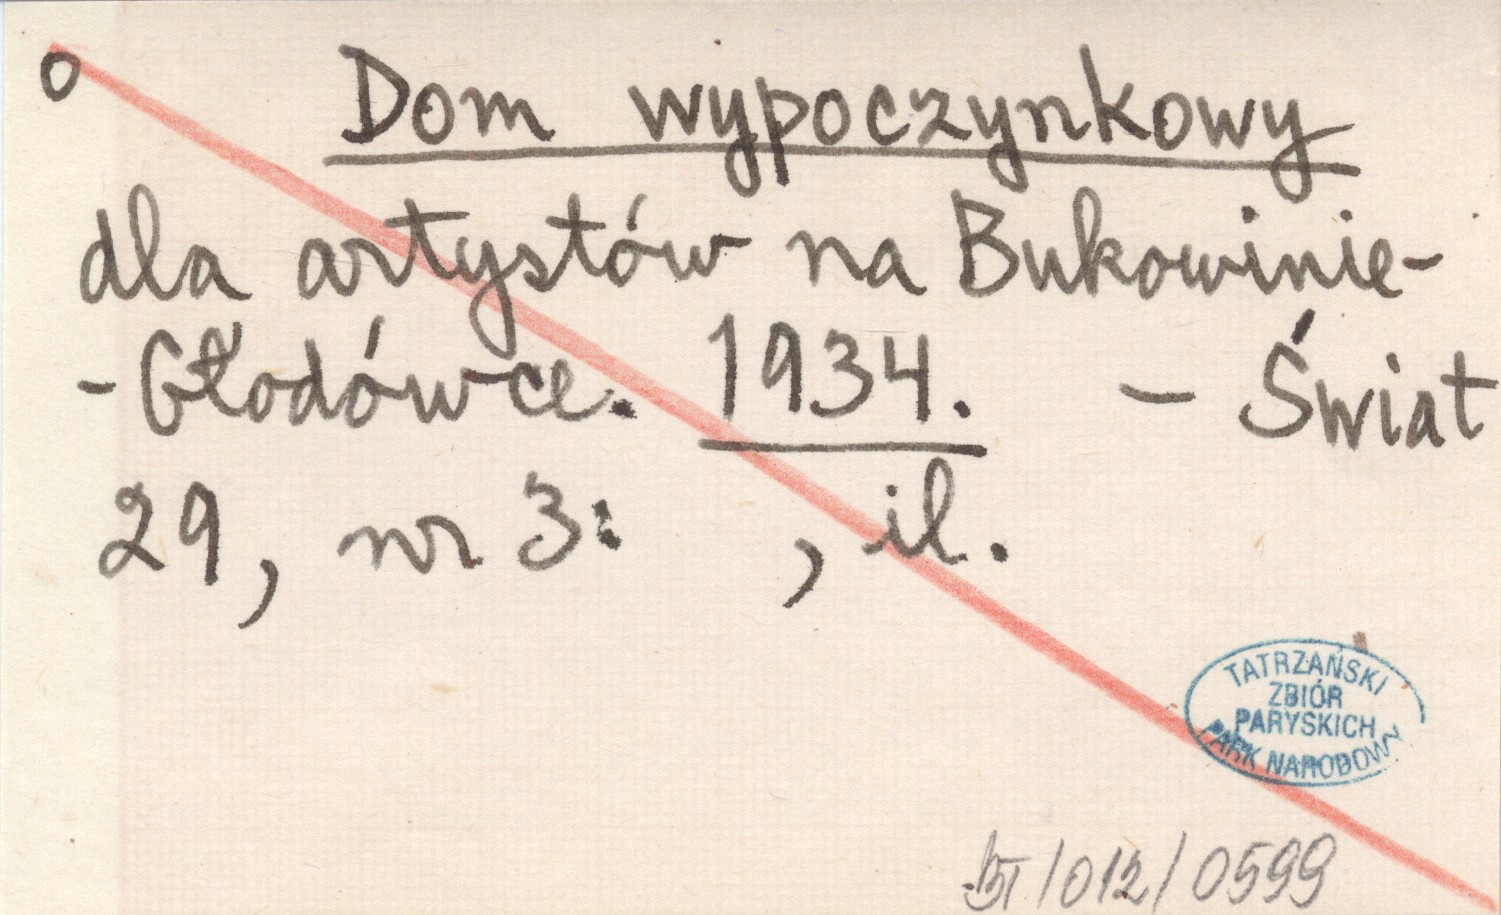 o Dom wypoczynkowy
dla artystów na Bukowinie-
-Głodówce. 1934. - Świat
29, nr 3: , il.
TATRZAŃSKI
ZBIÓR
PARYSKICH
PARK NARODOWY
/012/0599